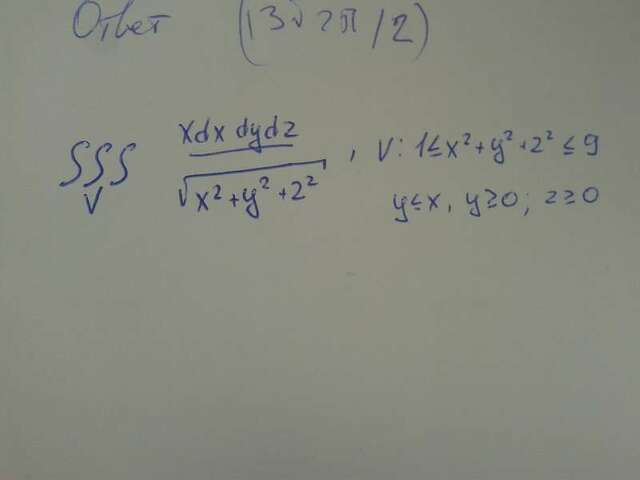 Ответ (13√2π/2)
∫∫∫_V xdxdydz / √(x²+y²+z²) , V: 1≤x²+y²+z²≤9
y≤x, y≥0; z≥0